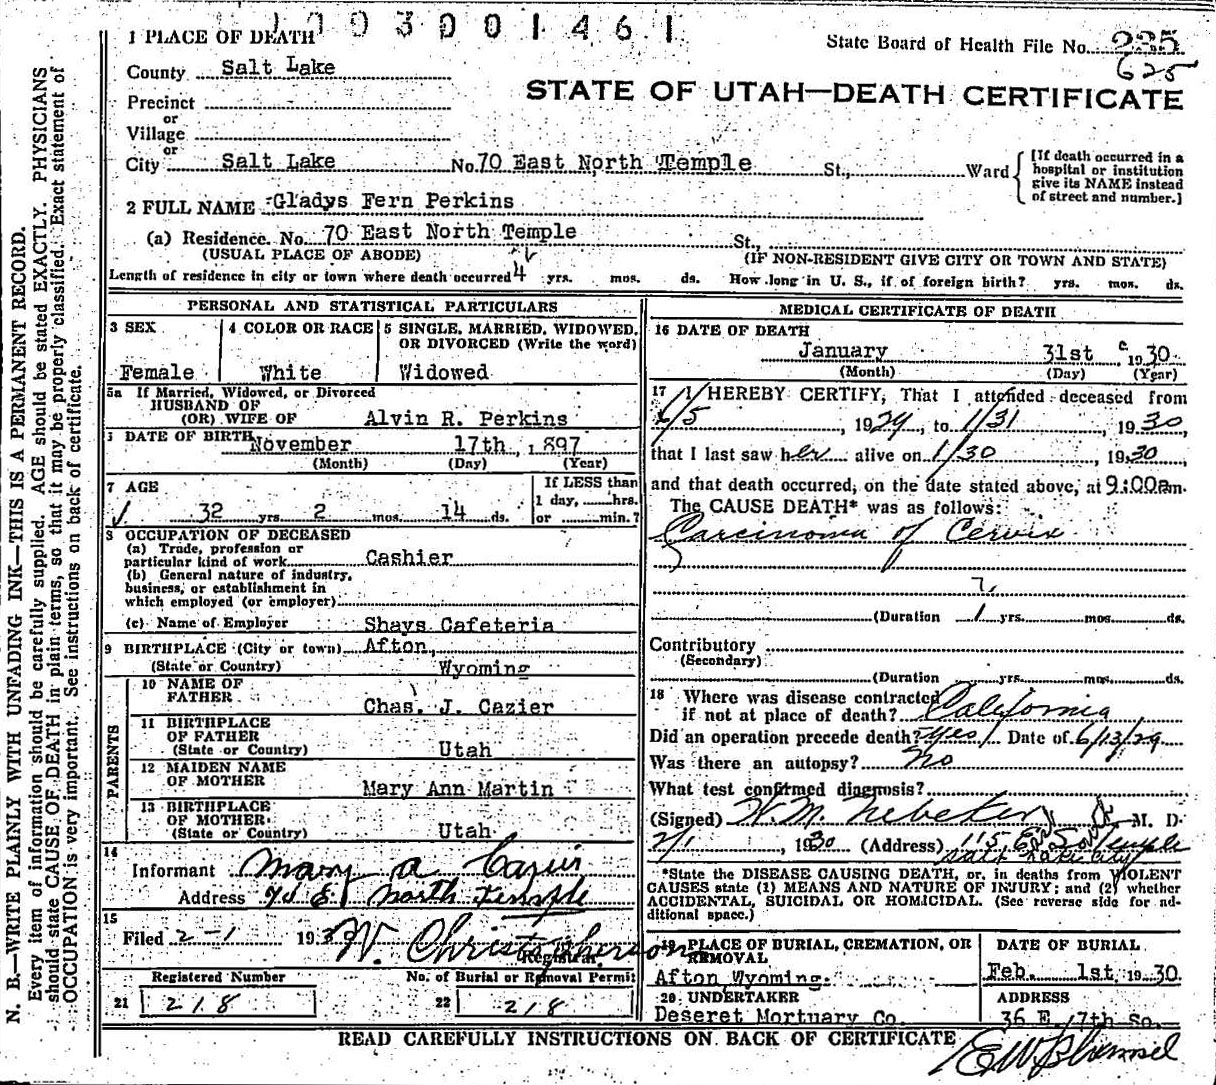 1003001461
State Board of Health File No. 235
625
1 PLACE OF DEATH
County Salt Lake
STATE OF UTAH—DEATH CERTIFICATE
Precinct
or
Village
or
City Salt Lake No. 70 East North Temple St., Ward
[If death occurred in a hospital or institution give its NAME instead of street and number.]
2 FULL NAME Gladys Fern Perkins
(a) Residence. No. 70 East North Temple St.,
(USUAL PLACE OF ABODE) (IF NON-RESIDENT GIVE CITY OR TOWN AND STATE)
Length of residence in city or town where death occurred 4 yrs. mos. ds. How long in U. S., if of foreign birth? yrs. mos. ds.
PERSONAL AND STATISTICAL PARTICULARS
3 SEX
Female
4 COLOR OR RACE
White
5 SINGLE, MARRIED, WIDOWED,
OR DIVORCED (Write the word)
Widowed
5a If Married, Widowed, or Divorced
HUSBAND OF
(OR) WIFE OF Alvin R. Perkins
DATE OF BIRTH November 17th, 1897
(Month) (Day) (Year)
7 AGE
32 yrs. 2 mos. 14 ds.
If LESS than
1 day, hrs.
or min.?
8 OCCUPATION OF DECEASED
(a) Trade, profession or
particular kind of work Cashier
(b) General nature of industry,
business, or establishment in
which employed (or employer)
(c) Name of Employer Shays Cafeteria
9 BIRTHPLACE (City or town) Afton,
(State or Country) Wyoming
PARENTS
10 NAME OF
FATHER Chas. J. Cazier
11 BIRTHPLACE
OF FATHER
(State or Country) Utah
12 MAIDEN NAME
OF MOTHER Mary Ann Martin
13 BIRTHPLACE
OF MOTHER
(State or Country) Utah
14
Informant Mary A Cazier
Address 70 E North Temple
15
Filed 2-1 193 W. Christopherson
Registrar
Registered Number
21 218
No. of Burial or Removal Permit
22 218
MEDICAL CERTIFICATE OF DEATH
16 DATE OF DEATH
January 31st 1930
(Month) (Day) (Year)
17 I HEREBY CERTIFY, That I attended deceased from
6/5, 1929, to 1/31, 1930,
that I last saw her alive on 1/30, 1930,
and that death occurred, on the date stated above, at 9:00am.
The CAUSE DEATH* was as follows:
Carcinoma of Cervix
7,
(Duration 1 yrs. mos. ds.
Contributory
(Secondary)
(Duration yrs. mos. ds.
18 Where was disease contracted
if not at place of death? California
Did an operation precede death? Yes Date of 6/13/29
Was there an autopsy? no
What test confirmed diagnosis?
(Signed) W. M. Nebeker M. D.
2/1, 1930 (Address) 115 East South Temple
Salt Lake City
*State the DISEASE CAUSING DEATH, or, in deaths from VIOLENT
CAUSES state (1) MEANS AND NATURE OF INJURY; and (2) whether
ACCIDENTAL, SUICIDAL OR HOMICIDAL. (See reverse side for ad-
ditional space.)
19 PLACE OF BURIAL, CREMATION, OR
REMOVAL
Afton, Wyoming.
DATE OF BURIAL
Feb. 1st, 1930
20 UNDERTAKER
Deseret Mortuary Co.
ADDRESS
36 E. 7th So.
READ CAREFULLY INSTRUCTIONS ON BACK OF CERTIFICATE
N. B.—WRITE PLAINLY WITH UNFADING INK—THIS IS A PERMANENT RECORD.
Every item of information should be carefully supplied. AGE should be stated EXACTLY. PHYSICIANS
should state CAUSE OF DEATH in plain terms, so that it may be properly classified. Exact statement of
OCCUPATION is very important. See instructions on back of certificate.